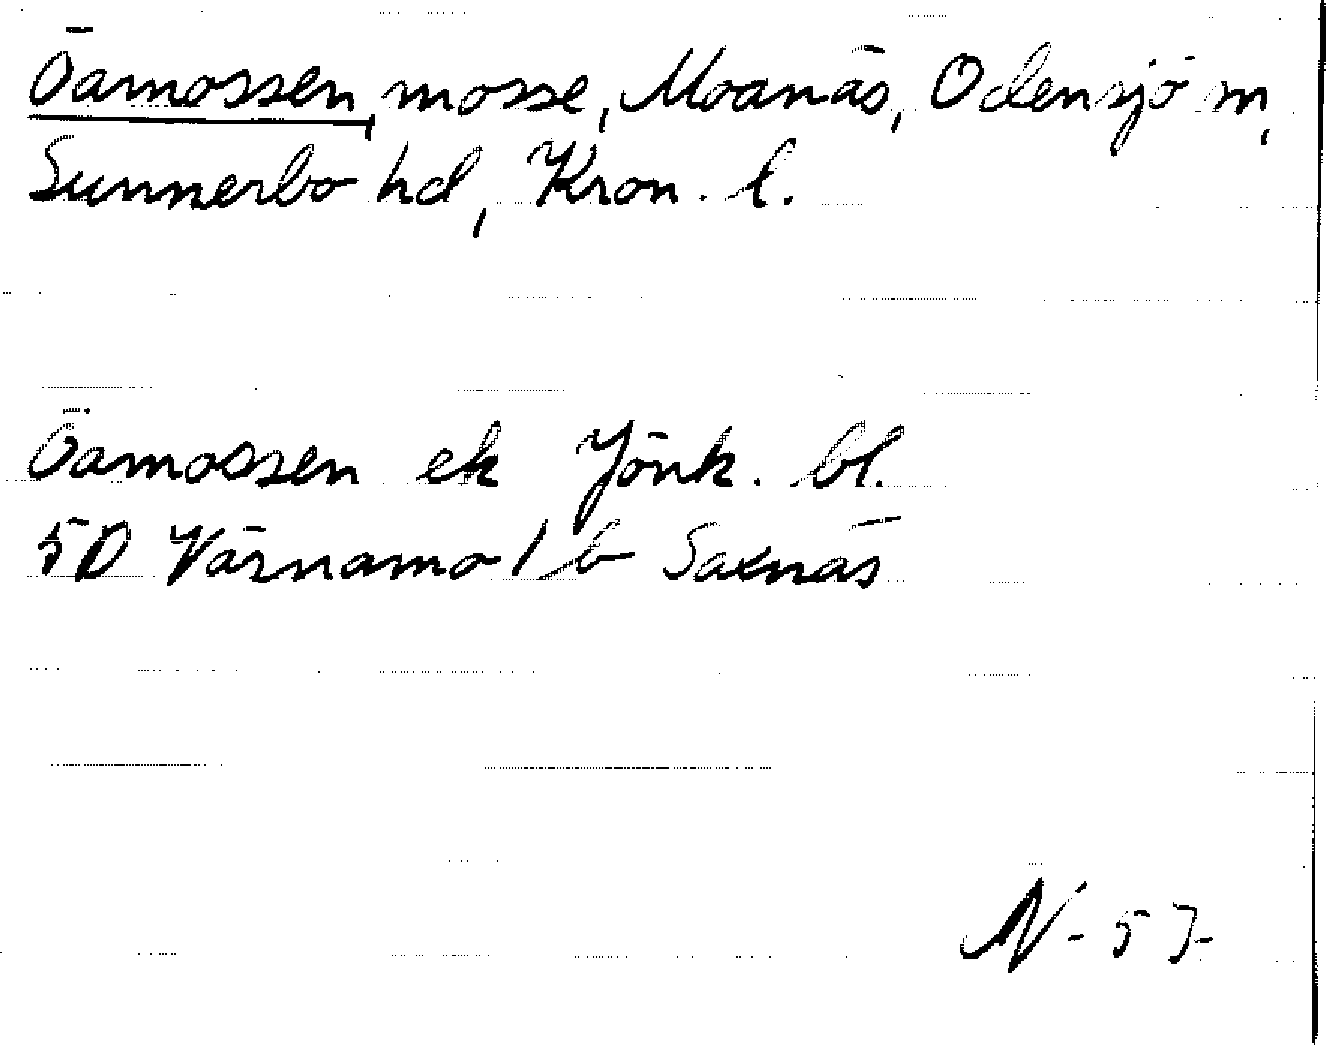 Öamossen, mosse, Moanäs, Odensjö sn,
Sunnerbo hd, Kron. l.
Öamossen ek Jönk. bl.
5D Värnamo 1 b Saxnäs
N-57-